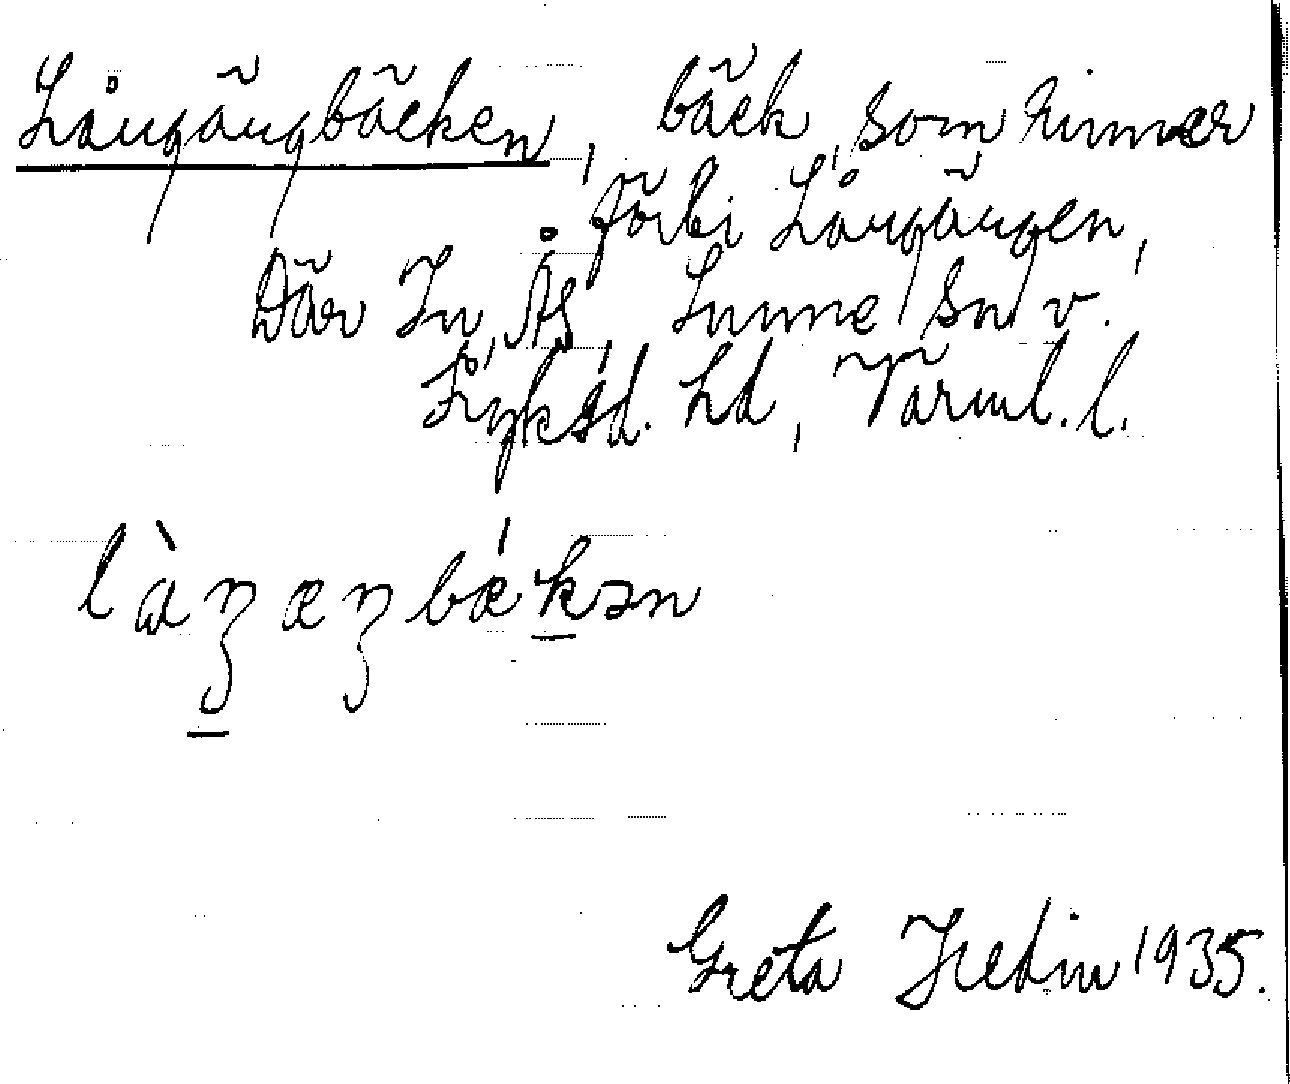 Långängbäcken, bäck, som rinner
förbi Långängen,
Där In, Ås, Sunne sn v.
Fryksd. hd, Värml. l.
là̱ŋæŋbǽḵən
Greta Hedin 1935.